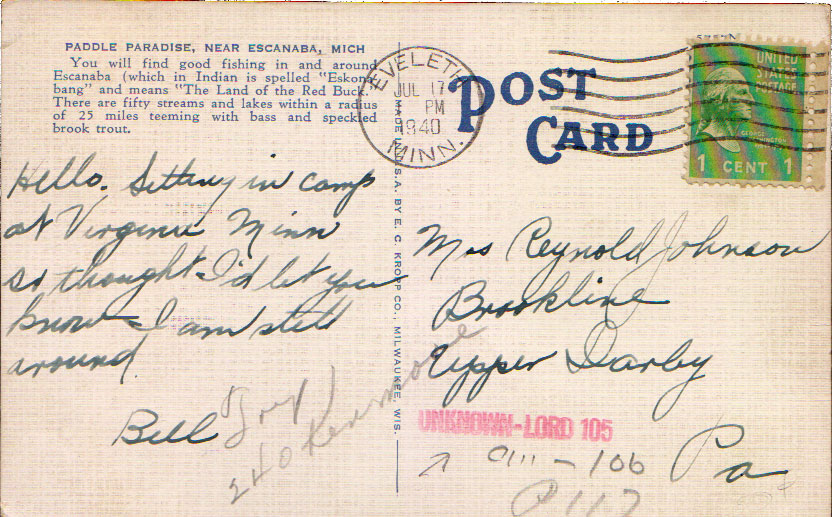 PADDLE PARADISE, NEAR ESCANABA, MICH
You will find good fishing in and around
Escanaba (which in Indian is spelled "Eskona-
bang" and means "The Land of the Red Buck."
There are fifty streams and lakes within a radius
of 25 miles teeming with bass and speckled
brook trout.
EVELETH
JUL 17
PM
1940
MINN.
POST
CARD
UNITED
STATES
POSTAGE
GEORGE
WASHINGTON
1 CENT 1
Hello. Sitting in camp
at Virginia Minn
so thought I'd let you
know I am still
around
Bill
240 Kenmore
MADE IN U.S.A. BY E. C. KROPP CO., MILWAUKEE, WIS.
Mrs Reynold Johnson
Brookline
Upper Darby
Pa
UNKNOWN-LORD 105
- 106